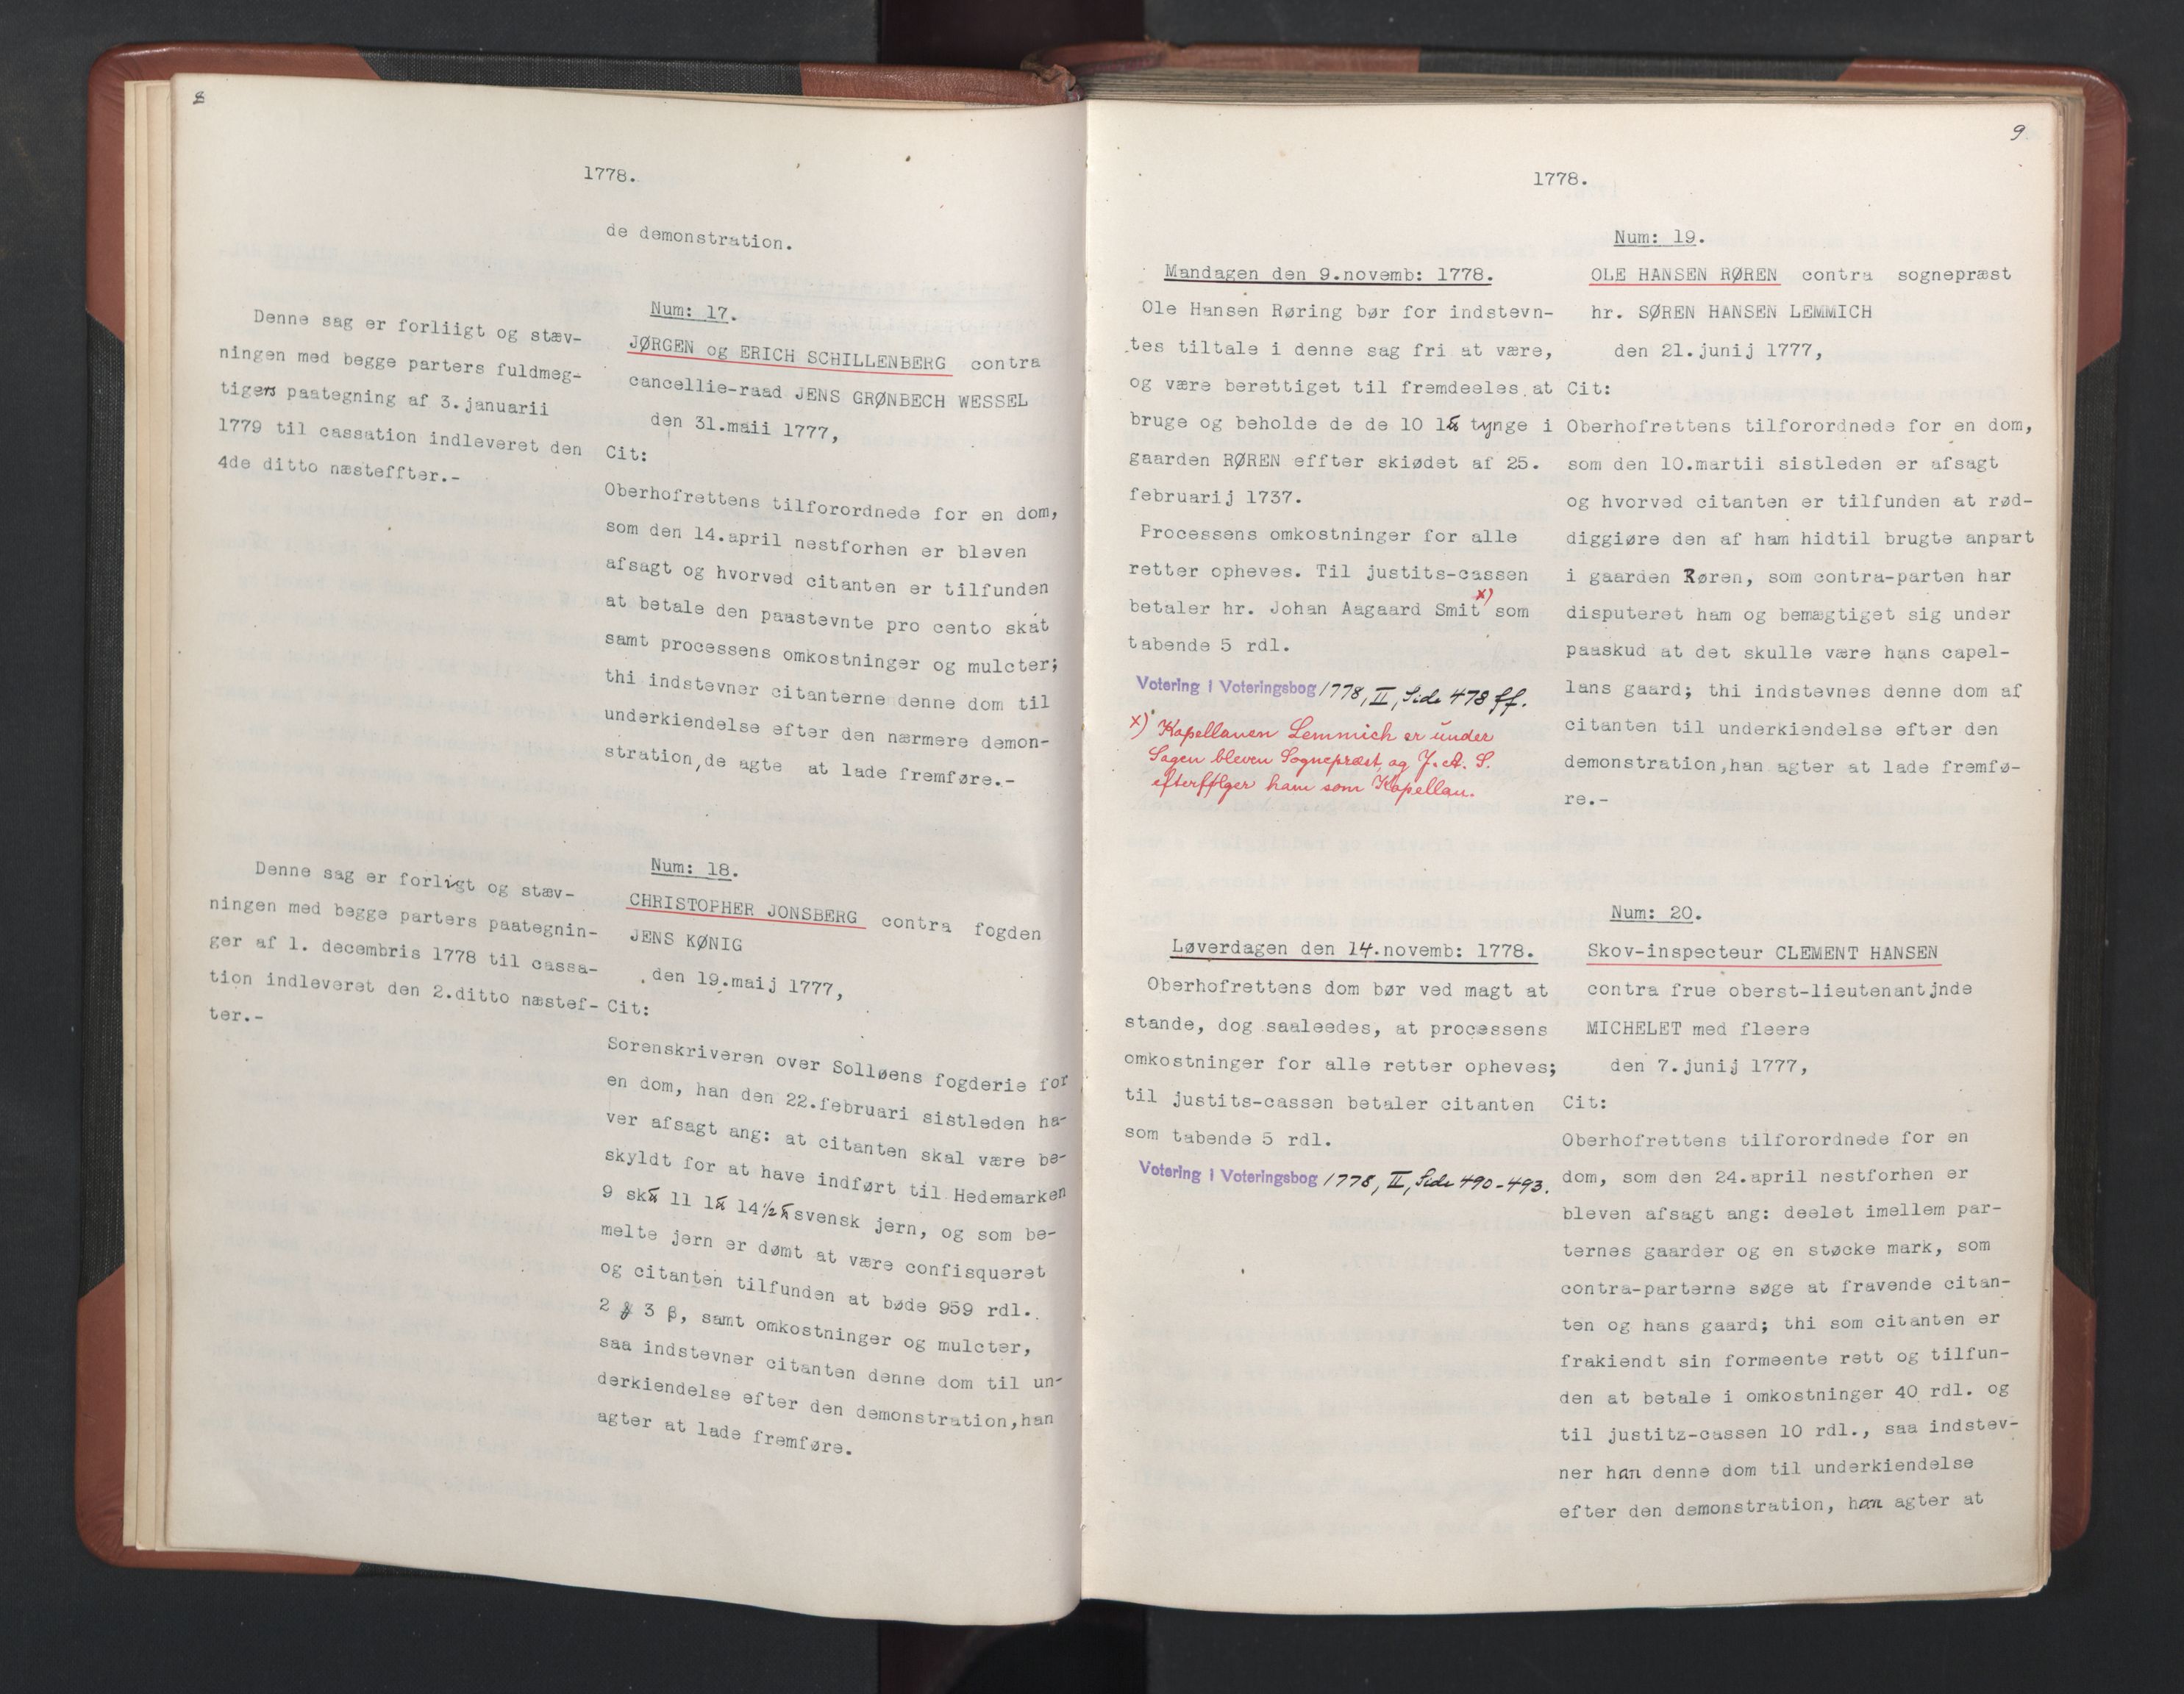 8
1778.
de demonstration.
Denne sag er forliigt og stæv-
ningen med begge parters fuldmeg-
tigers paategning af 3.januarii
1779 til cassation indleveret den
4de ditto næsteffter.-
Num: 17.
JØRGEN og ERICH SCHILLENBERG contra
cancellie-raad JENS GRØNBECH WESSEL
den 31.maii 1777,
Cit:
Oberhofrettens tilforordnede for en dom,
som den 14.april nestforhen er bleven
afsagt og hvorved citanten er tilfunden
at betale den paastevnte pro cento skat
samt processens omkostninger og mulcter;
thi indstevner citanterne denne dom til
underkiendelse efter den nærmere demon-
stration,de agte at lade fremføre.-
Denne sag er forligt og stæv-
ningen med begge parters paategnin-
ger af 1. decembris 1778 til cassa-
tion indleveret den 2.ditto næstef-
ter.-
Num: 18.
CHRISTOPHER JONSBERG contra fogden
JENS KØNIG
den 19.maij 1777,
Cit:
Sorenskriveren over Solløens fogderie for
en dom, han den 22.februari sistleden ha-
ver afsagt ang: at citanten skal være be-
skyldt for at have indført til Hedemarken
9 sk℔ 11 l℔ 14½ ℔ svensk jern, og som be-
melte jern er dømt at være confisqueret
og citanten tilfunden at bøde 959 rdl.
2 ꝟ 3 β, samt omkostninger og mulcter,
saa indstevner citanten denne dom til un-
derkiendelse efter den demonstration,han
agter at lade fremføre.
9
1778.
Mandagen den 9.novemb: 1778.
Ole Hansen Røring bør for indstevn-
tes tiltale i denne sag fri at være,
og være berettiget til fremdeeles at
bruge og beholde de de 10 l℔ tynge i
gaarden RØREN effter skiødet af 25.
februarij 1737.
Processens omkostninger for alle
retter opheves. Til justits-cassen
betaler hr. Johan Aagaard Smit x) som
tabende 5 rdl.
Votering i Voteringsbog 1778, II, Side 478 ff.
x) Kapellanen Lemmich er under
Sagen bleven Sognepræst og J. A. S.
efterfølger ham som Kapellan.
Num: 19.
OLE HANSEN RØREN contra sognepræst
hr. SØREN HANSEN LEMMICH
den 21.junij 1777,
Cit:
Oberhofrettens tilforordnede for en dom,
som den 10.martii sistleden er afsagt
og hvorved citanten er tilfunden at rød-
diggiøre den af ham hidtil brugte anpart
i gaarden Røren, som contra-parten har
disputeret ham og bemægtiget sig under
paaskud at det skulle være hans capel-
lans gaard; thi indstevnes denne dom af
citanten til underkiendelse efter den
demonstration,han agter at lade fremfø-
re.-
Løverdagen den 14.novemb: 1778.
Oberhofrettens dom bør ved magt at
stande, dog saaleedes, at processens
omkostninger for alle retter opheves;
til justits-cassen betaler citanten
som tabende 5 rdl.
Votering i Voteringsbog 1778, II, Side 490-493.
Num: 20.
Skov-inspecteur CLEMENT HANSEN
contra frue oberst-lieutenantjnde
MICHELET med fleere
den 7.junij 1777,
Cit:
Oberhofrettens tilforordnede for en
dom, som den 24.april nestforhen er
bleven afsagt ang: deelet imellem par-
ternes gaarder og en støcke mark, som
contra-parterne søge at fravende citan-
ten og hans gaard; thi som citanten er
frakiendt sin formeente rett og tilfun-
den at betale i omkostninger 40 rdl. og
til justitz-cassen 10 rdl., saa indstev-
ner han denne dom til underkiendelse
efter den demonstration, han agter at